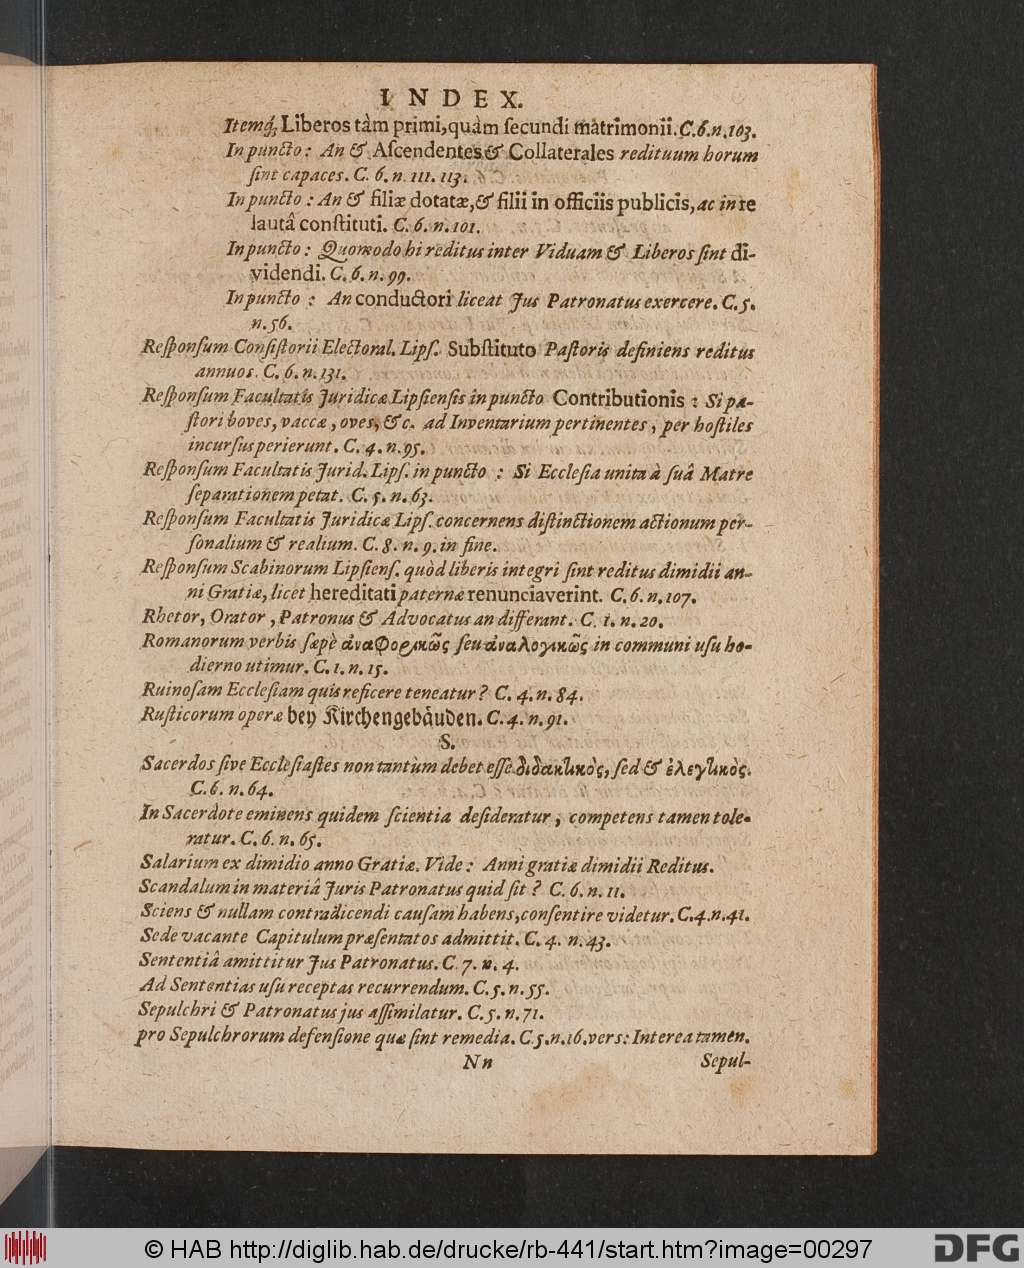 INDEX.
Itemq́; Liberos tàm primi, quàm ſecundi matrimonii. C. 6. n. 103.
In puncto: An & Aſcendentes & Collaterales redituum horum
ſint capaces. C. 6. n. 111. 113.
In puncto: An & filiæ dotatæ, & filii in officiis publicis, ac in re
lautâ conſtituti. C. 6. n. 101.
In puncto: Quomodo hi reditus inter Viduam & Liberos ſint di-
videndi. C. 6. n. 99.
In puncto: An conductori liceat Jus Patronatus exercere. C. 5.
n. 56.
Reſponſum Conſiſtorii Electoral. Lipſ. Subſtituto Paſtoris definiens reditus
annuos. C. 6. n. 131.
Reſponſum Facultatis Juridicæ Lipſienſis in puncto Contributionis: Si pa-
ſtori boves, vaccæ, oves, &c. ad Inventarium pertinentes, per hoſtiles
incurſus perierunt. C. 4. n. 95.
Reſponſum Facultatis Jurid. Lipſ. in puncto: Si Eccleſia unita à ſuâ Matre
ſeparationem petat. C. 5. n. 63.
Reſponſum Facultatis Juridicæ Lipſ. concernens diſtinctionem actionum per-
ſonalium & realium. C. 8. n. 9. in fine.
Reſponſum Scabinorum Lipſienſ. quòd liberis integri ſint reditus dimidii an-
ni Gratiæ, licet hereditati paternæ renunciaverint. C. 6. n. 107.
Rhetor, Orator, Patronus & Advocatus an differant. C. 1. n. 20.
Romanorum verbis ſæpè ἀναφορικῶς ſeu ἀναλογικῶς in communi uſu ho-
dierno utimur. C. 1. n. 15.
Ruinoſam Eccleſiam quis reficere teneatur? C. 4. n. 84.
Ruſticorum operæ bey Kirchengebäuden. C. 4. n. 91.
S.
Sacerdos ſive Eccleſiaſtes non tantùm debet eſſe διδακτικὸς, ſed & ἐλεγτικὸς.
C. 6. n. 64.
In Sacerdote eminens quidem ſcientia deſideratur, competens tamen tole-
ratur. C. 6. n. 65.
Salarium ex dimidio anno Gratiæ. Vide: Anni gratiæ dimidii Reditus.
Scandalum in materiâ Juris Patronatus quid ſit? C. 6. n. 11.
Sciens & nullam contradicendi cauſam habens, conſentire videtur. C. 4. n. 41.
Sede vacante Capitulum præſentatos admittit. C. 4. n. 43.
Sententiâ amittitur Jus Patronatus. C. 7. n. 4.
Ad Sententias uſu receptas recurrendum. C. 5. n. 55.
Sepulchri & Patronatus jus aſſimilatur. C. 5. n. 71.
pro Sepulchrorum defenſione quæ ſint remedia. C. 5. n. 16. verſ: Interea tamen.
Nn Sepul-
© HAB http://diglib.hab.de/drucke/rb-441/start.htm?image=00297
DFG